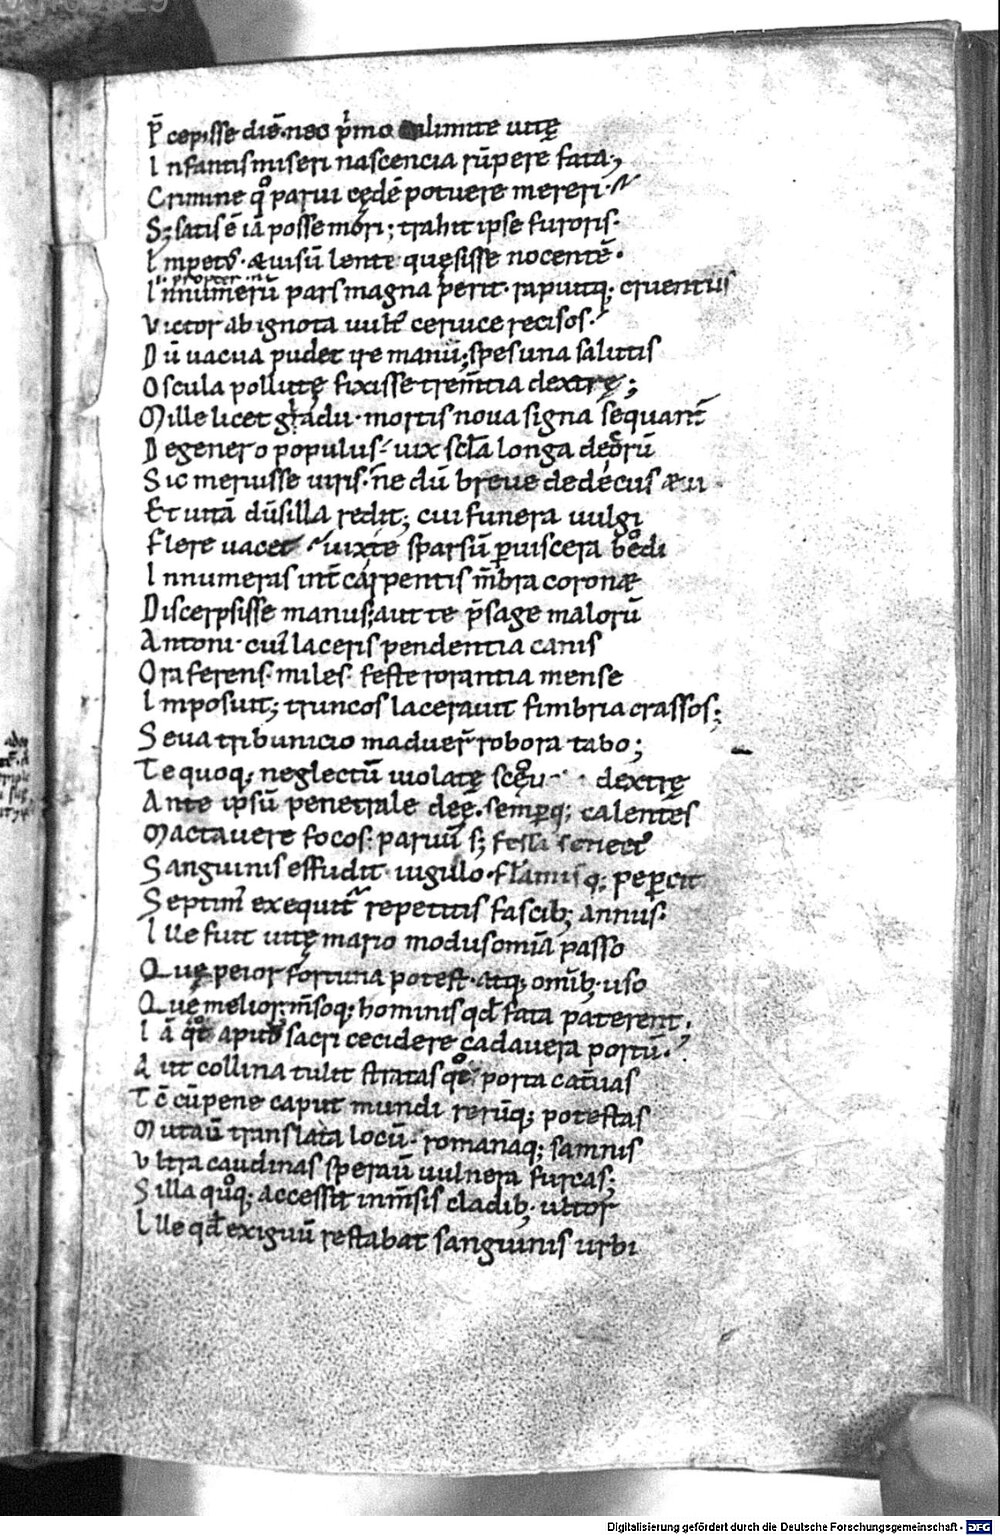 P̄cepisse diē. nec p̄mo limite uitę
Infantis miseri nascencia rūpere fata;
Crimine qͦ parui cędē potuere mereri.
S; satis ē iā posse mori; trahit ipse furoris.
Impetꝰ. & uisū lente quęsisse nocentē.
In numerū pars magna perit. rapuitq; cruentus
Victor ab ignota uultꝰ ceruice recisos.
Dū uacua pudet ire manu; spes una salutis
Oscula pollutę fixisse trem̄tia dextrę;
Mille licet gladii mortis noua signa sequant̄
Degener o populus. uix scl̄a longa decorū
Sic meruisse uiris. nedū breue dedecus æui
Et uitā dū silla redit; cui funera uulgi
Flere uacet uix te sparsū ꝑ uiscera bebi
Innumeras int̄ carpentis m̄bra coronæ
Discerpsisse manus; aut te p̄sage malorū
Antoni. cuiꝰ laceris pendentia canis
Ora ferens. miles. feste rorantia mense
Imposuit; truncos lacerauit fimbria crassos;
Seua tribunicio maduer̄ robora tabo;
Te quoq; neglectū uiolatę dextrę
Ante ipsū penetrale deę. semꝑq; calentes
Mactauere focos: paruū s; fessa senectꝰ
Sanguinis effudit iugulo. flāmisq; peꝑcit
Septimꝰ exequit̄ repetitis fascib; annus.
Ille fuit uitę mario modus om̄ia passo
Quę peior fortuna potest. atq; om̄ib; uso
Quę melior. m̄soq; hominis qd̄ fata paterent.
Iā qͦt apud sacri cecidere cadauera portū.
Aut collina tulit stratas qͦt porta cat̄uas
Tc̄ cū pene caput mundi rerūq; potestas
Mutaū translata locū. romanaq; samnis
Vltra caudinas speraū uulnera furcas;
Silla quoq; accessit inm̄sis cladib; ultor
Ille qd̄ exiguū restabat sanguinis urbi
Digitalisierung gefördert durch die Deutsche Forschungsgemeinschaft - DFG